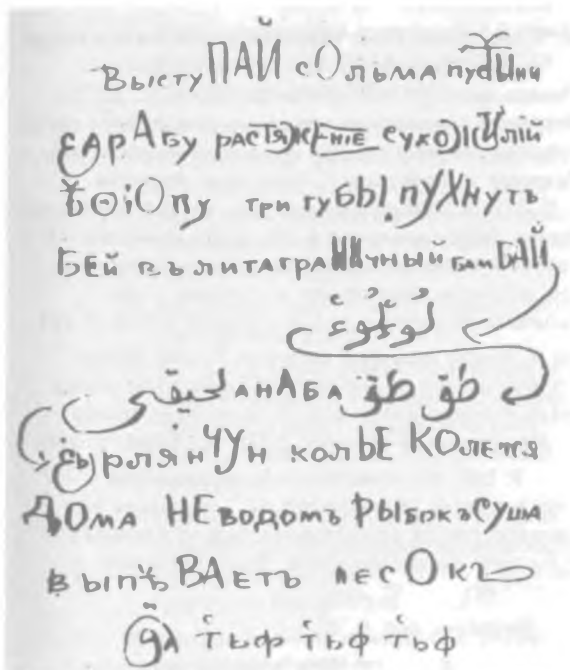 ВыстуПАЙ сОльма пуСТЫни
ЕАрАбу растЯЖЕНiЕ сухоЖИлiй
ѢѲiОпу три губЫ.пУХНуть
БЕй въ литаграНИчный бай БАЙ
لؤلؤء
طق طق АНАБА لحيقى
ЕырляН ЧУн кольЕ КОлетя
ДОма НЕводомъ РЫбокъ Суша
выпѣВАетъ песОкъ
ӚА тьф тьф тьф